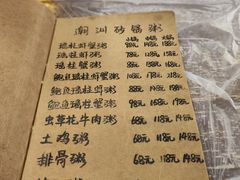 潮汕砂锅粥
瑶柱虾蟹粥 78元 118元 158元
瑶柱虾粥 78元 118元 148元
瑶柱蟹粥 118元 148元
鲍鱼瑶柱虾蟹粥 138元 178元
鲍鱼瑶柱虾粥 118元 168元
鲍鱼瑶柱蟹粥 98元 148元 198元
虫草花牛肉粥 68元 118元 148元
土鸡粥 68元 118元 148元
排骨粥 68元 118元 148元